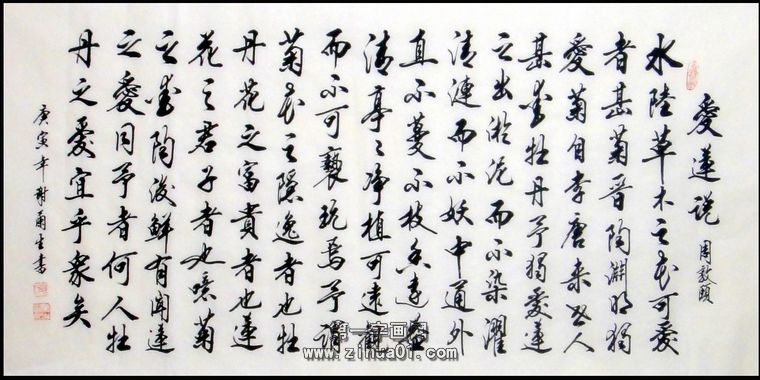 愛蓮说
周敦頤
水陸草木之花可愛
者甚菊晋陶淵明獨
愛菊自李唐来世人
甚愛牡丹予獨愛蓮
之出淤泥而不染濯
清漣而不妖中通外
直不蔓不枝香遠益
清亭〻净植可遠觀
而不可褻玩焉予謂
菊花之隱逸者也牡
丹花之富貴者也蓮
花之君子者也噫菊
之愛陶後鮮有聞蓮
之愛同予者何人牡
丹之愛宜乎衆矣
庚寅年谢生書
第一字画网
www.zihua01.com